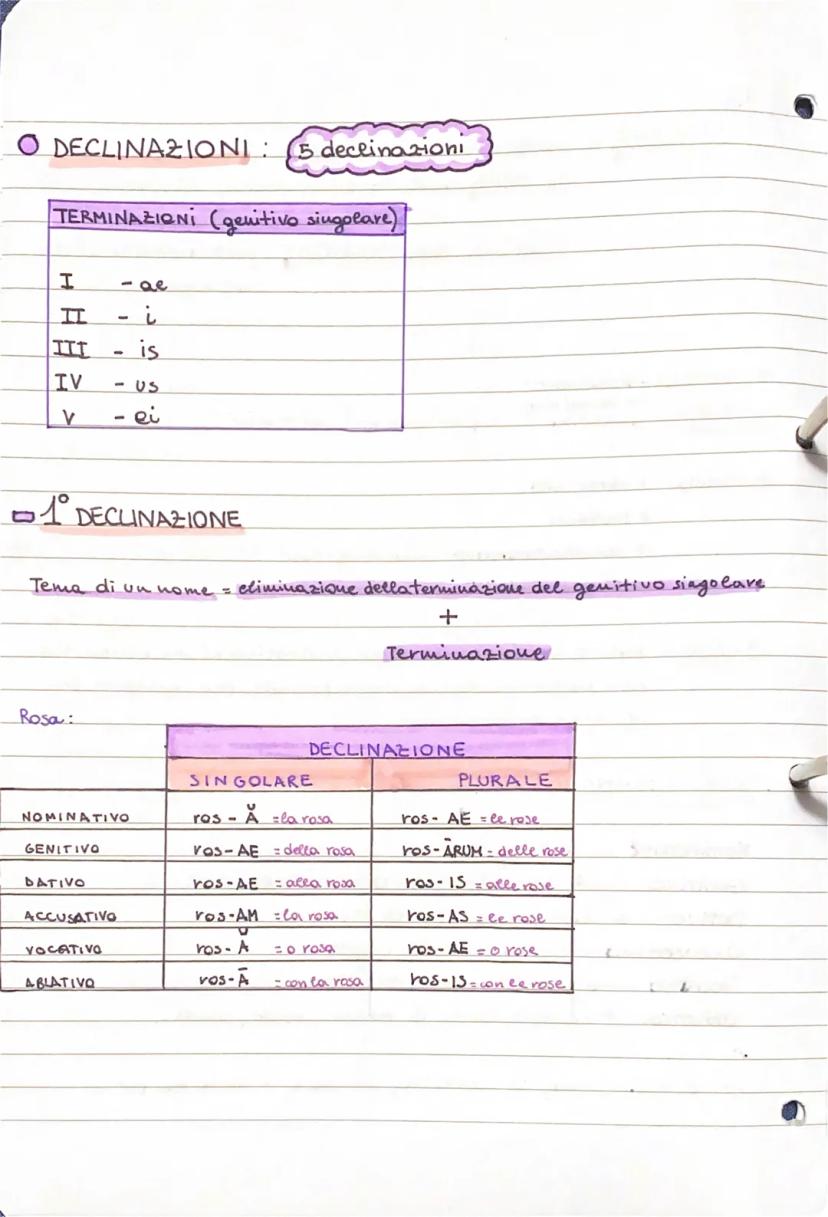 DECLINAZIONI : 5 declinazioni
TERMINAZIONI (genitivo singolare)
I - ae
II - i
III - is
IV - us
V - ei
1° DECLINAZIONE
Tema di un nome = eliminazione della terminazione del genitivo singolare
+
Terminazione
Rosa :
DECLINAZIONE
SINGOLARE PLURALE
NOMINATIVO ros - Ă = la rosa ros - AE = le rose
GENITIVO ros - AE = della rosa ros - ĀRUM = delle rose
DATIVO ros - AE = alla rosa ros - IS = alle rose
ACCUSATIVO ros - AM = la rosa ros - AS = le rose
VOCATIVO ros - Ă = o rosa ros - AE = o rose
ABLATIVO ros - Ā = con la rosa ros - IS = con le rose